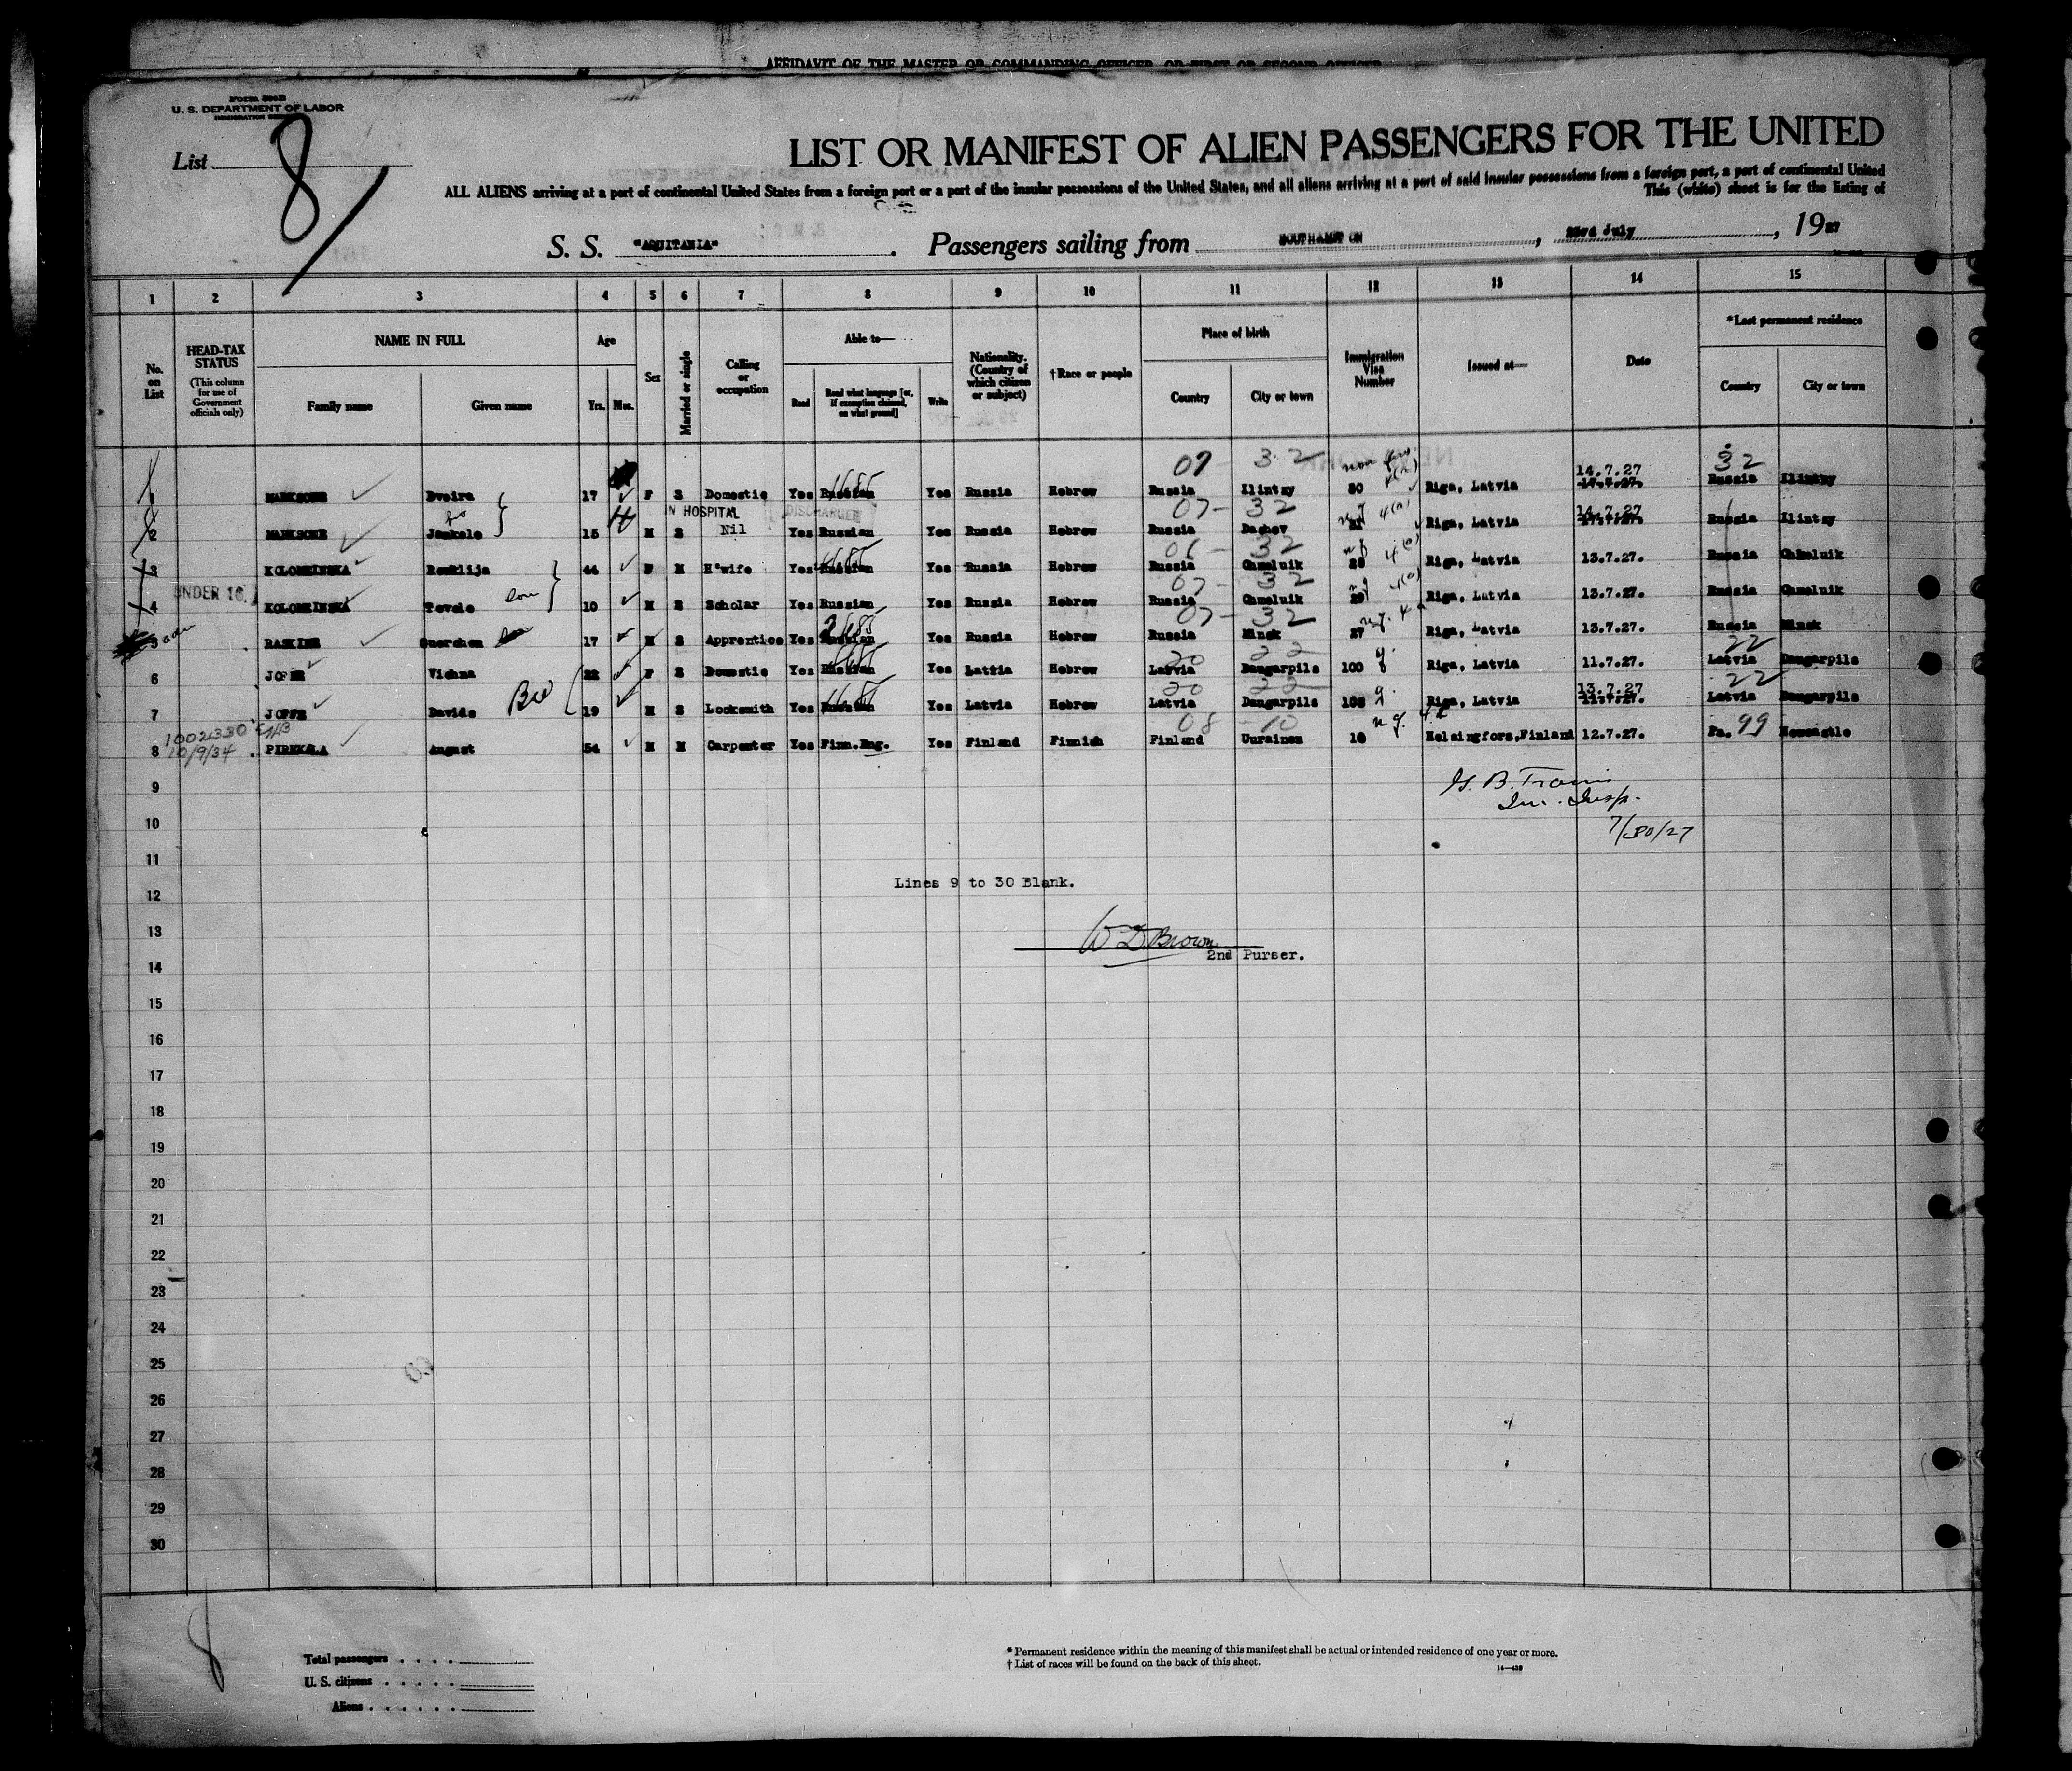 AFFIDAVIT OF THE MASTER OR COMMANDING OFFICER, OR FIRST OR SECOND OFFICER
U. S. DEPARTMENT OF LABOR
List 8
LIST OR MANIFEST OF ALIEN PASSENGERS FOR THE UNITED
ALL ALIENS arriving at a port of continental United States from a foreign port or a port of the insular possessions of the United States, and all aliens arriving at a port of said insular possessions from a foreign port, a part of continental United
This (white) sheet is for the listing of
S. S. "AQUITANIA". Passengers sailing from SOUTHAMPTON, 23rd July, 1927
1 2 3 4 5 6 7 8 9 10 11 12 13 14 15
No. on List
HEAD-TAX STATUS (This column for use of Government officials only)
NAME IN FULL
Family name Given name
Age
Yrs. Mos.
Sex
Married or single
Calling or occupation
Able to—
Read Read what language [or, if exemption claimed, on what ground] Write
Nationality. (Country of which citizen or subject)
†Race or people
Place of birth
Country City or town
Immigration Visa Number
Issued at—
Date
*Last permanent residence
Country City or town
07 32 32
14.7.27
1 Dveira 17 F S Domestic Yes Russian Yes Russia Hebrew Russia Ilintzy 80 Riga, Latvia 14.7.27. Russia Ilintzy
IN HOSPITAL DISCHARGED 07- 32
14.7.27
2 Jankele 15 M S Nil Yes Russian Yes Russia Hebrew Russia Dashev Riga, Latvia Russia Ilintzy
32
3 KOLOMEINSKA 44 F M H'wife Yes Russian Yes Russia Hebrew Russia Chmeluik Riga, Latvia 13.7.27. Russia Chmeluik
UNDER 16. 07- 32
4 KOLOMEINSKA Tevele son 10 M S Scholar Yes Russian Yes Russia Hebrew Russia Chmeluik Riga, Latvia 13.7.27. Russia Chmeluik
07- 32
5 RASKINE 17 M S Apprentice Yes Russian Yes Russia Hebrew Russia Minsk 27 Riga, Latvia 13.7.27. Russia Minsk
20 22 22
6 JOFFE Vichna 22 F S Domestic Yes Russian Yes Latvia Hebrew Latvia Daugarpils 100 Riga, Latvia 11.7.27. Latvia Daugarpils
20 22 13.7.27 22
7 JOFFE Davids Bro 19 M S Locksmith Yes Russian Yes Latvia Hebrew Latvia Daugarpils 103 Riga, Latvia 11.7.27. Latvia Daugarpils
1002330
10/9/34
08 - 10
8 August 54 M M Carpenter Yes Finn.Eng. Yes Finland Finnish Finland Uurainen 10 Helsingfors, Finland 12.7.27. Pa. 99 Newcastle
9
Im. Insp.
10
7/30/27
11
12 Lines 9 to 30 Blank.
13 W D Brown
2nd Purser.
14
15
16
17
18
19
20
21
22
23
24
25
26
27
28
29
30
Total passengers
U. S. citizens
Aliens
* Permanent residence within the meaning of this manifest shall be actual or intended residence of one year or more.
† List of races will be found on the back of this sheet.